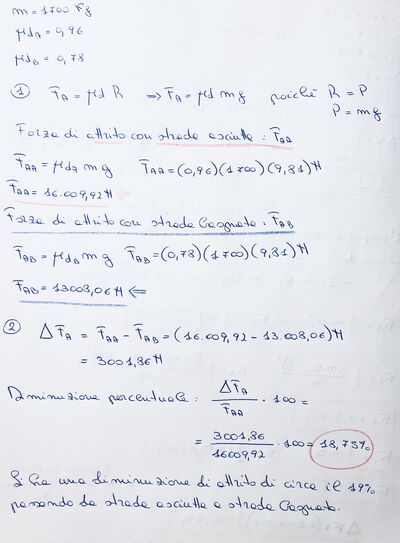 m = 1700 Kg
μd_A = 0,96
μd_B = 0,78
① F_A = μd R ⇒ F_A = μd m g poiché R = P
P = m g
Forza di attrito con strada asciutta : F_AA
F_AA = μd_A m g F_AA = (0,96)(1700)(9,81) N
F_AA = 16.009,92 N ⇐
Forza di attrito con strada bagnata : F_AB
F_AB = μd_B m g F_AB = (0,78)(1700)(9,81) N
F_AB = 13008,06 N ⇐
② ΔF_A = F_AA - F_AB = (16.009,92 - 13.008,06) N
= 3001,86 N
Diminuzione percentuale : ΔF_A / F_AA · 100 =
= 3001,86 / 16009,92 · 100 = 18,75%
Si ha una diminuzione di attrito di circa il 19%
passando da strada asciutta a strada bagnata.